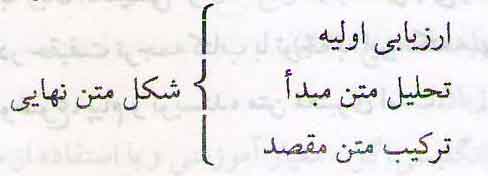 ارزیابی اولیه
تحلیل متن مبدأ
شکل متن نهایی
ترکیب متن مقصد